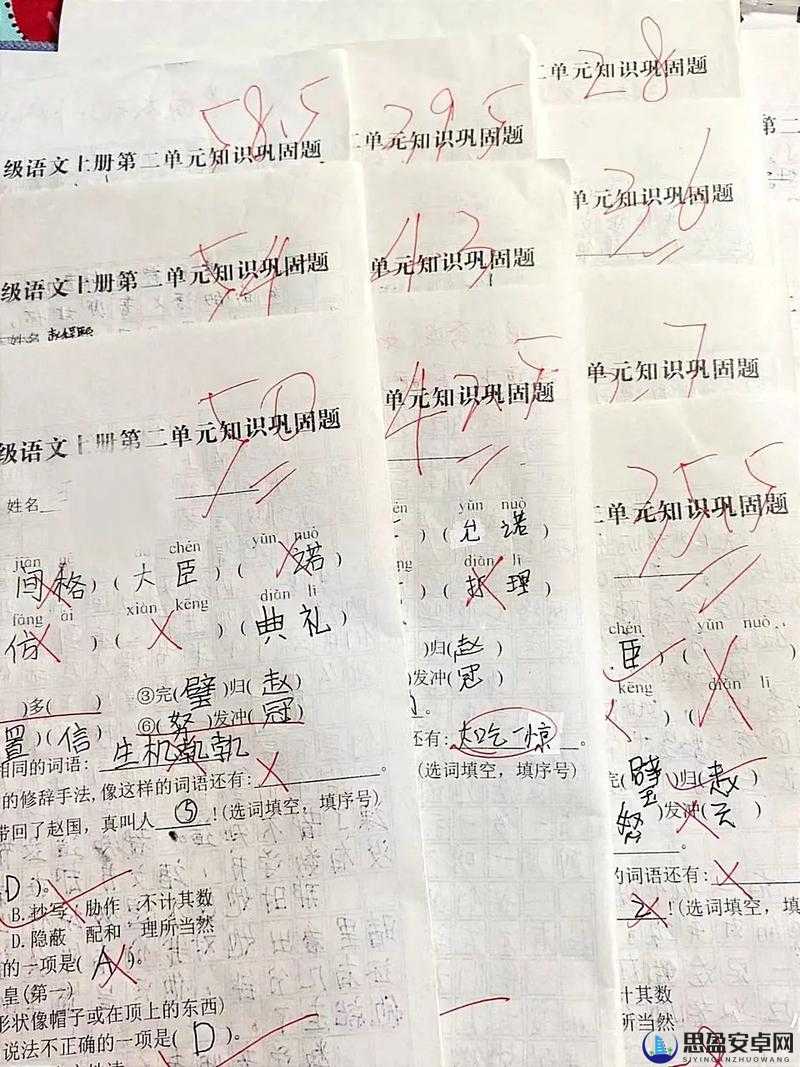 58.5
级语文上册第二单元知识巩固题
54
级语文上册第二单元知识巩固题
姓名
50
级语文上册第二单元知识巩固题
姓名
chén yǔn nuò
间格)(大臣)( 诺
fǎng ài xiàn kēng diǎn lǐ
仿 )( )(典礼)
)多( ) ③完(璧)归(赵)
置)(信) ⑥(努)发冲(冠)
相同的词语:生机
的修辞手法,像这样的词语还有: 。
带回了赵国,真叫人⑤!(选词填空,填序号)
D)。
B.抄写 胁作 不计其数
D.隐蔽 配和 理所当然
的一项是(A)。
皇(第一)
形状像帽子或在顶上的东西)
说法不正确的一项是(D)。
39.5
二单元知识巩固题
43
单元知识巩固题
42.5
单元知识巩固题
yǔn nuò
(允诺)
diǎn lǐ
( 理)
)归(赵)
发冲(冠)
还有:大吃一惊。
(选词填空,填序号)
28
二单元知识巩固题
36
单元知识巩固题
7
单元知识巩固题
25.5
二单元知识巩固题
chén yǔn nuò
臣)( )
kēng diǎn lǐ
完(璧)归(赵)
努)发冲( )
。
的词语还有: 。
2!(选词填空,填
不计其数
理所当然
第二
思盈安卓网
SIYINGANZHUOWANG